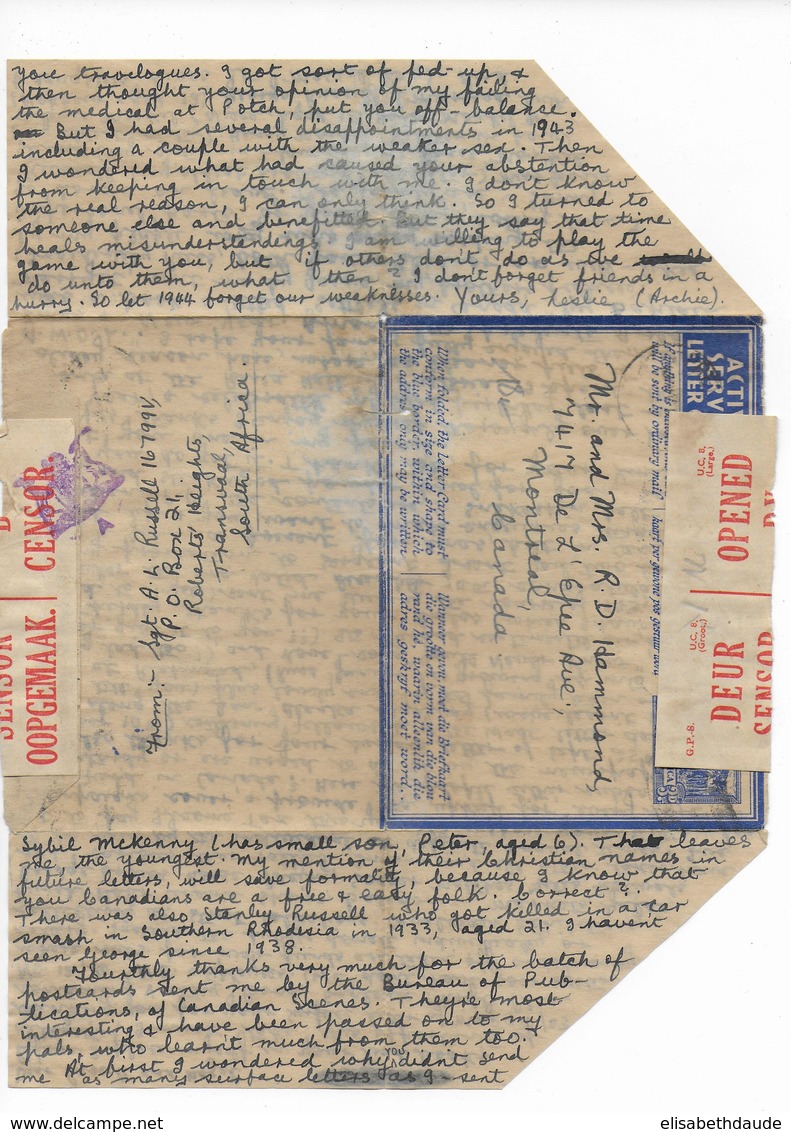 you travelogues. I got sort of fed-up, &
then thought your opinion of my failing
the medical at Potch, put you off-balance.
But I had several disappointments in 1943
including a couple with the weaker sex. Then
I wondered what had caused your abstention
from keeping in touch with me. I don't know
the real reason, I can only think. So I turned to
someone else and benefitted. But they say that time
heals misunderstandings. I am willing to play the
game with you, but if others don't do as we
do unto them, what then? I don't forget friends in a
hurry. So let 1944 forget our weaknesses. Yours, Leslie (Archie).
From:- Sgt. A. L. Russell 16799V,
P. O. Box 21,
Roberts' Heights,
Transvaal,
South Africa.
CENSOR.
SENSOR
OOPGEMAAK.
A
When folded the Letter Card must
conform in size and shape to
the blue border, within which
the address only may be written.
Wanneer gevou moet die Briefkaart
die grootte en vorm van die blou
rand hê, waarin alleenlik die
adres geskryf moet word.
ACTI
SERV
LETTER
will be sent by ordinary mail
Mr. and Mrs. R. D. Hammond,
7417 De L'Epee Ave.,
Montreal,
Canada.
U.C. 8.
(Large.)
OPENED
U.C. 8.
(Groot.)
G.P.-S.
DEUR
SENSOR
Sybil McKenny (has small son, Peter, aged 6). That leaves
me, the youngest. My mention of their Christian names in
future letters, will save formality, because I know that
you Canadians are a free & easy folk. Correct?
There was also Stanley Russell who got killed in a car
smash in Southern Rhodesia in 1933, aged 21. I havent
seen George since 1938.
Fourthly thanks very much for the batch of
postcards sent me by the Bureau of Pub-
lications, of Canadian Scenes. They're most
interesting & have been passed on to my
pals, who learn't much from them too.
At first I wondered why you didn't send
me as many surface letters as I sent
elisabethdaude